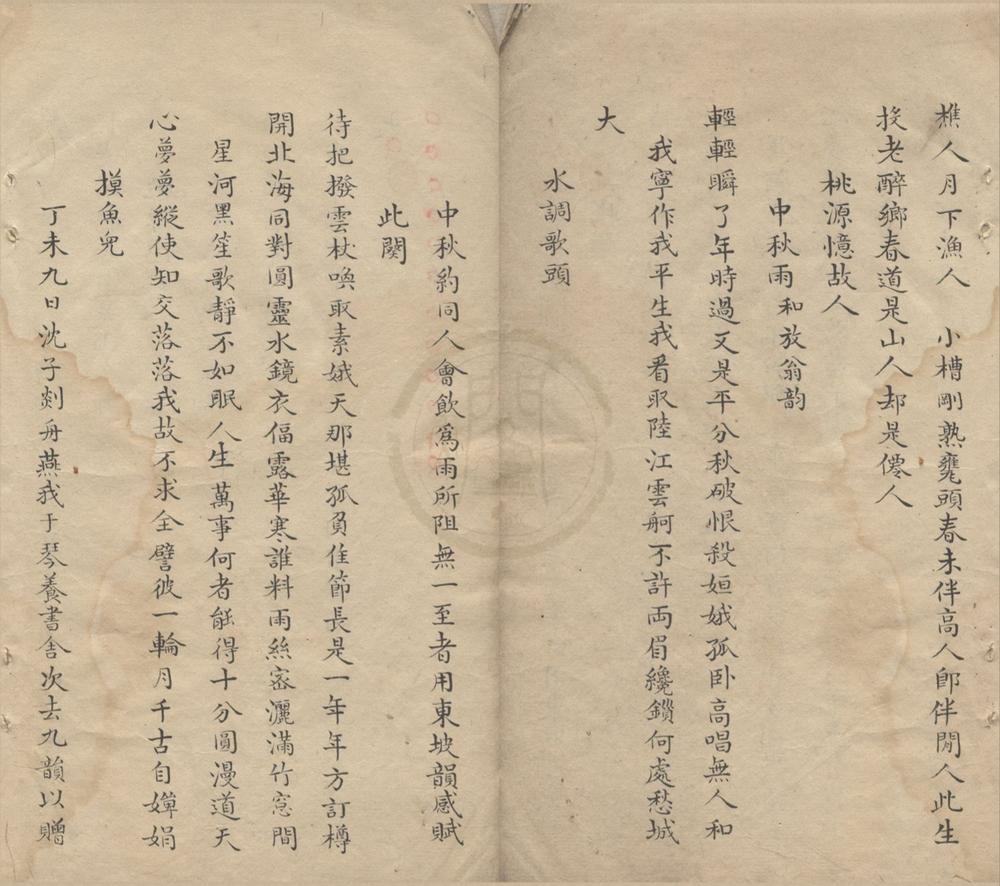 樵人月下漁人　小槽剛熟甕頭春未伴高人郎伴閒人此生
投老醉鄉春道是山人却是僊人
桃源憶故人
中秋雨和放翁韵
輕輕瞬了年時過又是平分秋破恨殺姮娥孤卧高唱無人和
我寧作我平生我看取陸江雲舸不許両眉纔鎖何處愁城
大
水調歌頭
中秋約同人會飲爲雨所阻無一至者用東坡韻感賦
此闋
待把撥雲杖喚取素娥天那堪孤負佳節長是一年年方訂樽
開北海同對圓靈水鏡衣偪露華寒誰料雨絲密灑滿竹窓間
星河黑笙歌靜不如眠人生萬事何者能得十分圓漫道天
心夢夢縱使知交落落我故不求全譬彼一輪月千古自嬋娟
摸魚兒
丁未九日沈子剡舟燕我于琴養書舍次去九韻以贈